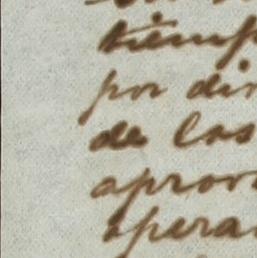 tiemp
por dir
de los
aprov
opera